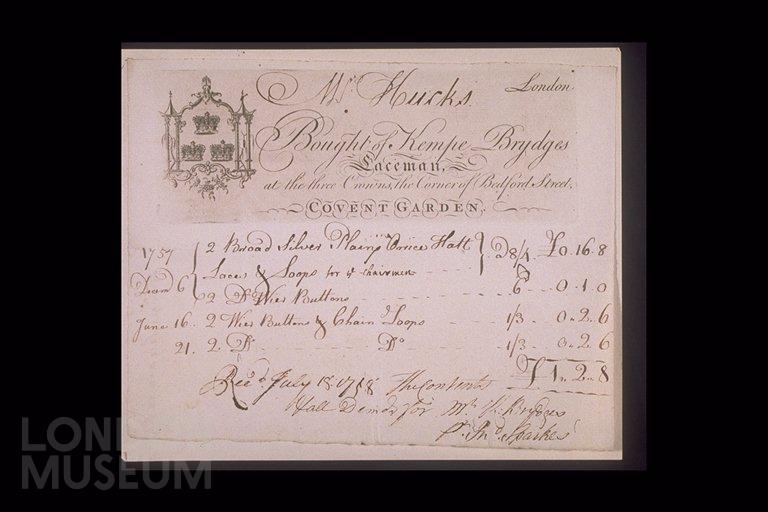 London
Mr. Hucks
Bought of Kempe Brydges
Laceman,
at the three Crowns, the Corner of Bedford Street,
COVENT GARDEN.
1757 2 Broad Silver Plain Orrice Hatt 8/4 £0.16.8
6 Laces & Loops for ye Chairmen
2 Do Wier Buttons 6 0.1.0
June 16. 2 Wier Buttons & Chain Loops 1/3 0.2.6
21. 2 Do Do 1/3 0.2.6
£1.2.8
Recd. July 18. 1758 The Contents
Demds for Mr K: Brydges
Jno. Sparkes
LONDON
MUSEUM